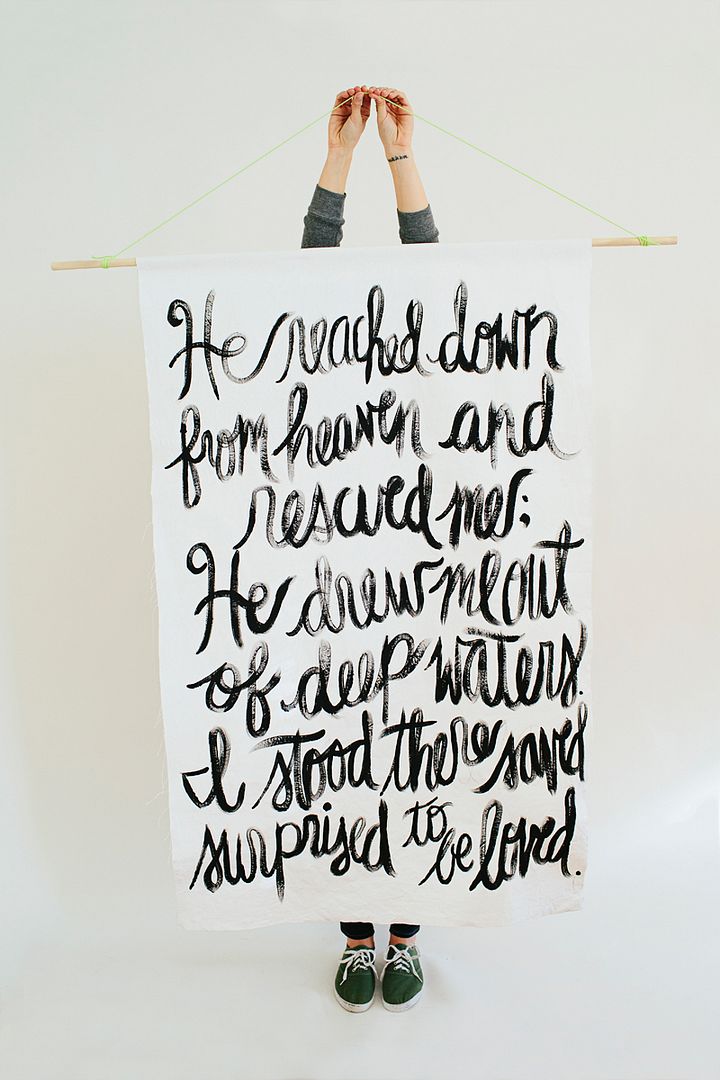 He reached down
from heaven and
rescued me;
He drew me out
of deep waters.
I stood there saved
surprised to be loved.